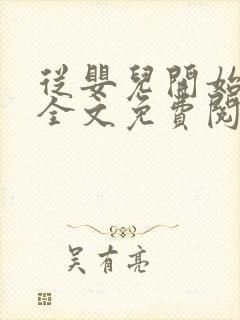 從嬰兒開始
全文免費閱
吴有亮